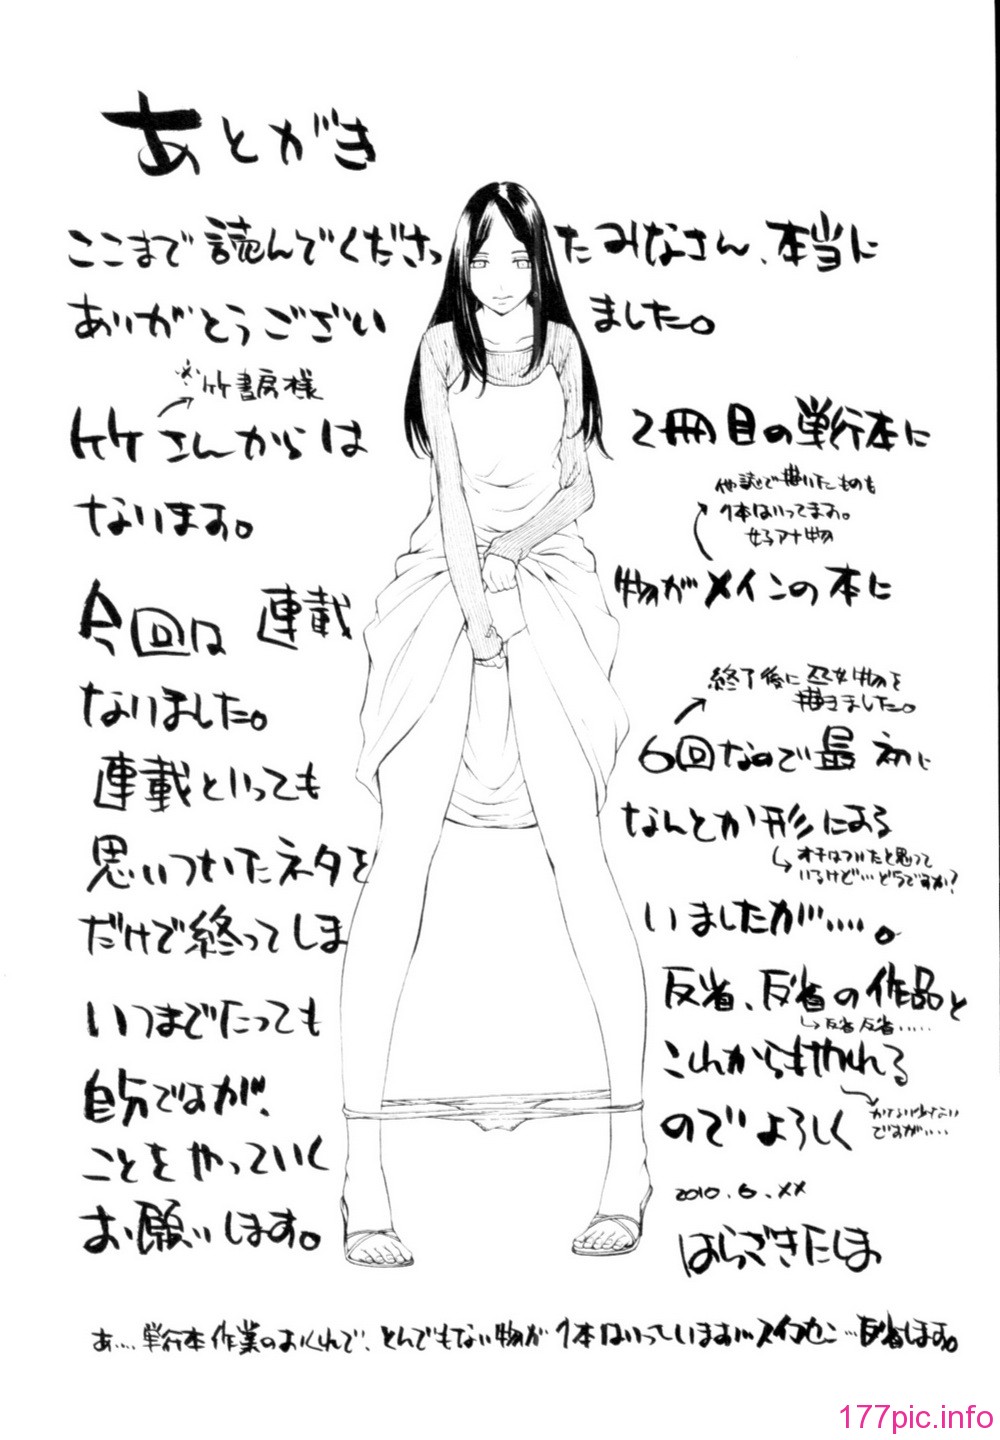 あとがき
ここまで読んでくださったみなさん、本当に
ありがとうございました。
※竹書房様
竹さんからは2冊目の単行本に
なります。
他誌で描いたものも
1本はいってます。
今回は連載物がメインの本に
なりました。
終了後に
描きました。
連載といっても6回なので最初に
思いついたネタをなんとか形にある
オチはついたと思って
いるけど…どうですか?
だけで終ってしまいましたが……。
いつまでたっても反省、反省の作品と
反省 反省……
自分ですが、これからもやれる
ですが……
ことをやっていくのでよろしく
お願いします。
2010.6.××
はらざきたくま
あ…単行本作業のおくれで、とんでもない物が1本はいっています…スイマセン…反省します。
177pic.info